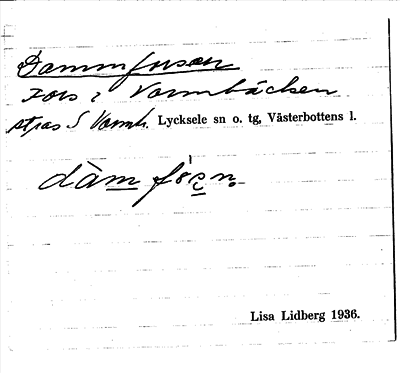 Dammforsen
Fors i Vormbäcken
strax S Vormb. Lycksele sn o. tg, Västerbottens l.
dàm fórsn.
Lisa Lidberg 1936.